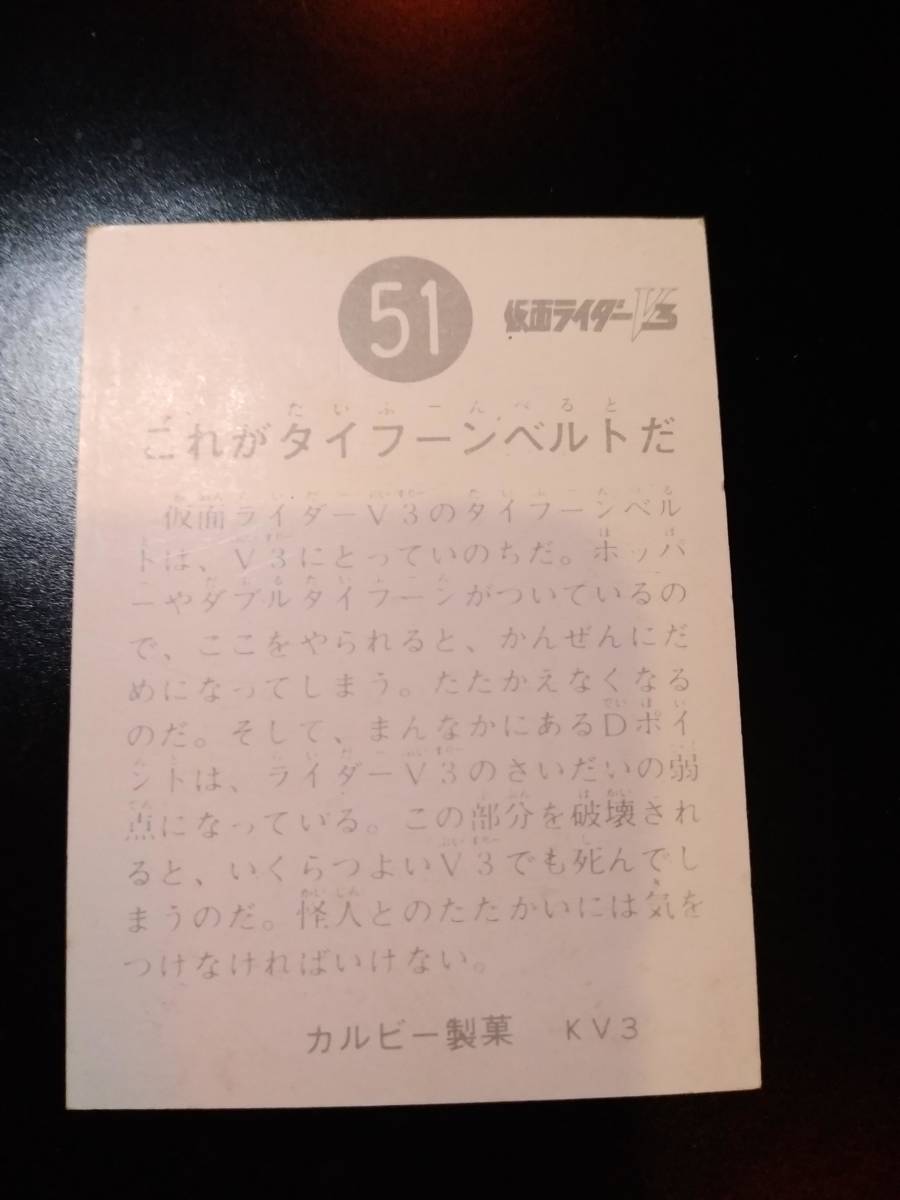 51 仮面ライダーV3
たいふーんべると
これがタイフーンベルトだ
仮面ライダーV3のタイフーンベル
トは、V3にとっていのちだ。ホッパ
ーやダブルタイフーンがついているの
で、ここをやられると、かんぜんにだ
めになってしまう。たたかえなくなる
のだ。そして、まんなかにあるDポイ
ントは、ライダーV3のさいだいの弱
点になっている。この部分を破壊され
ると、いくらつよいV3でも死んでし
まうのだ。怪人とのたたかいには気を
つけなければいけない。
カルビー製菓 KV3